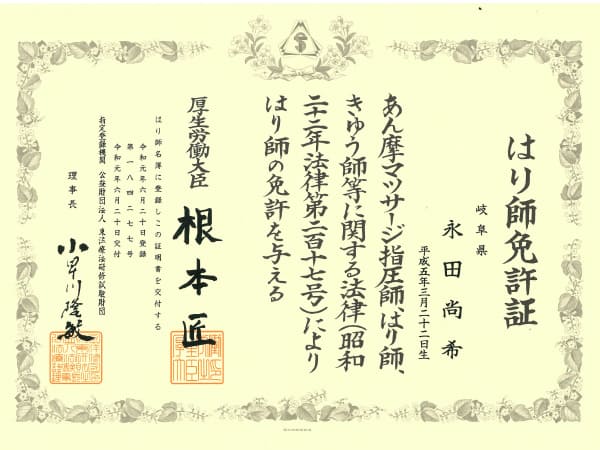 はり師免許証
岐阜県
永田尚希
平成五年三月二十二日生
あん摩マツサージ指圧師、はり師、
きゆう師等に関する法律(昭和
二十二年法律第二百十七号)により
はり師の免許を与える
厚生労働大臣
根本匠
はり師名簿に登録しこの証明書を交付する
令和元年六月二十日登録
第一八四二七七号
令和元年六月二十日交付
指定登録機関 公益財団法人 東洋療法研修試験財団
理事長
小早川隆敏